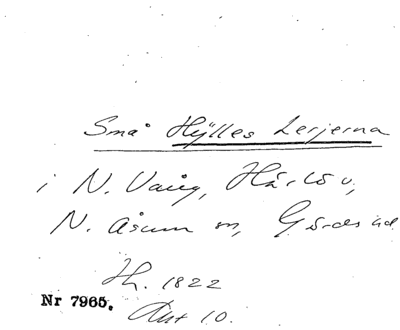 Små Hylles Lerjerna
i N. Vång, Härlöv,
N. Åsum m, Gärds hd
Hh. 1822
Nr 7965. Akt 10.